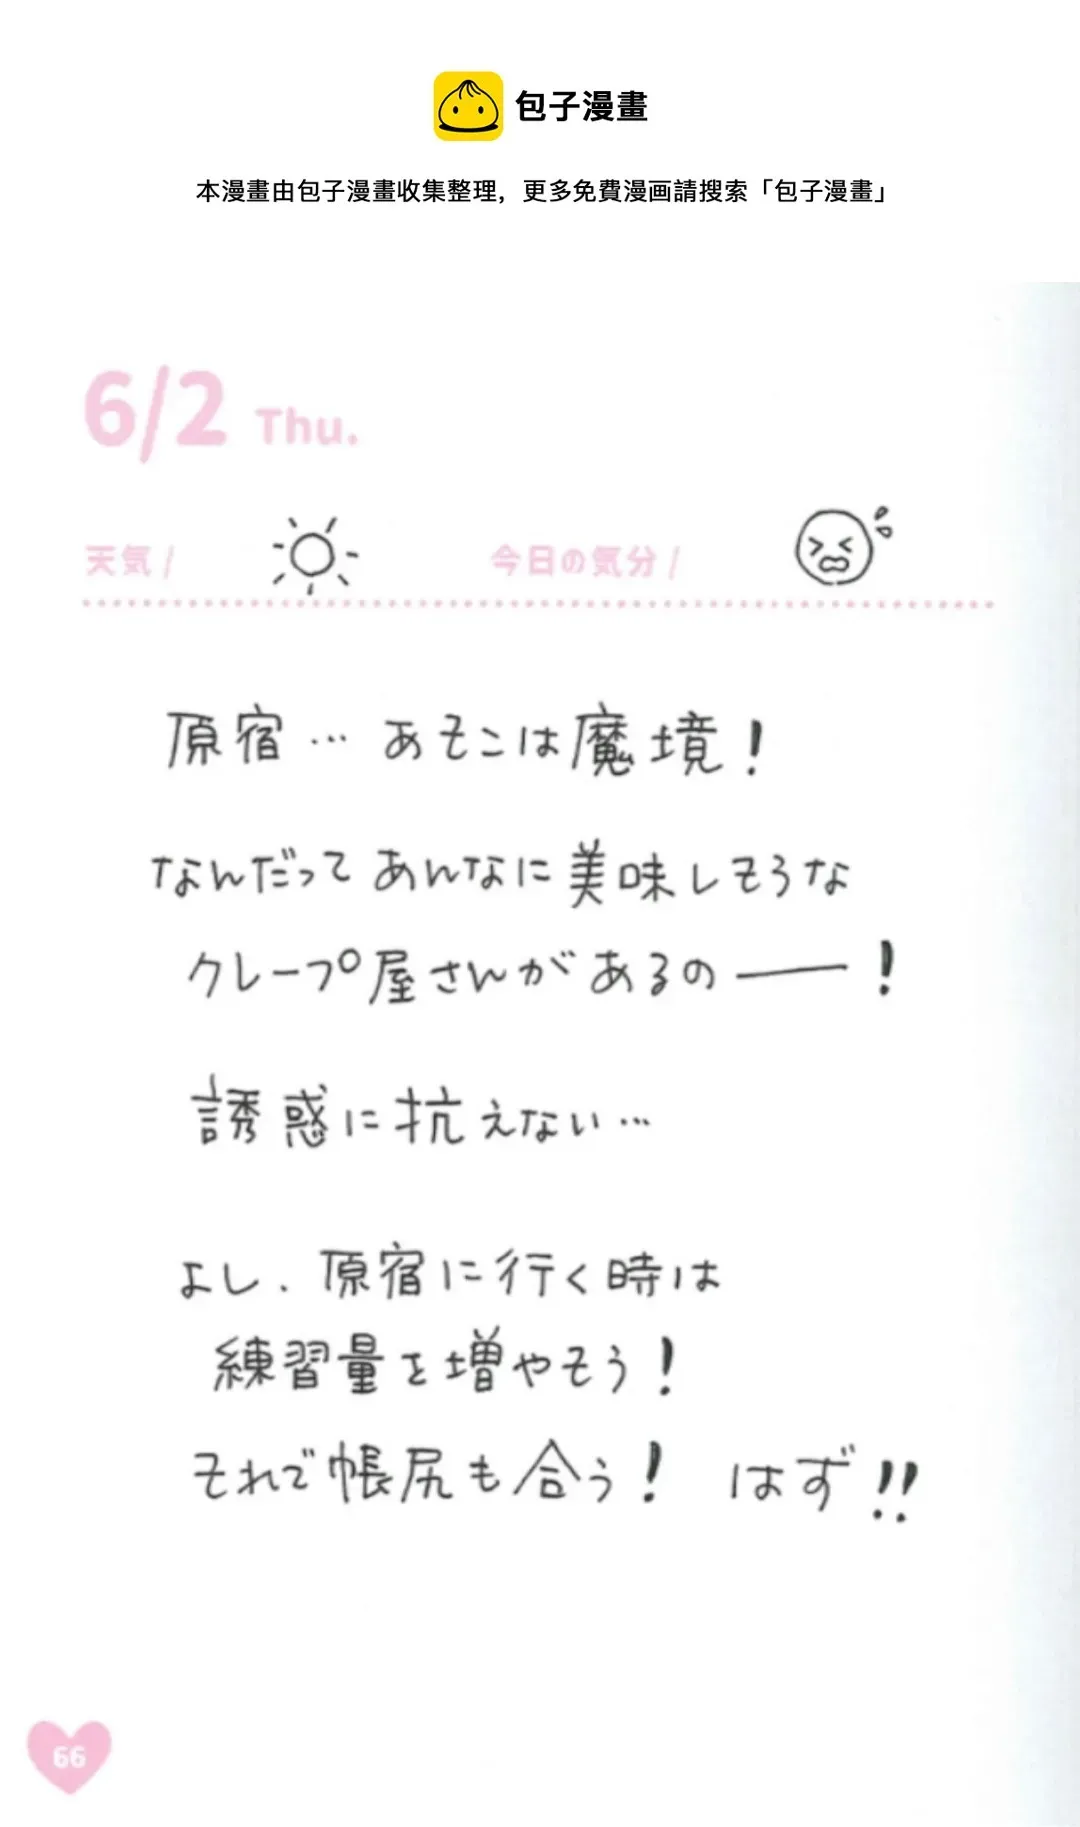 包子漫畫
本漫畫由包子漫畫收集整理，更多免費漫画請搜索「包子漫畫」
6/2 Thu.
天気/ 今日の気分/
原宿… あそこは魔境！
なんだってあんなに美味しそうな
クレープ屋さんがあるのーー！
誘惑に抗えない…
よし、原宿に行く時は
練習量を増やそう！
それで帳尻も合う！ はず!!
66